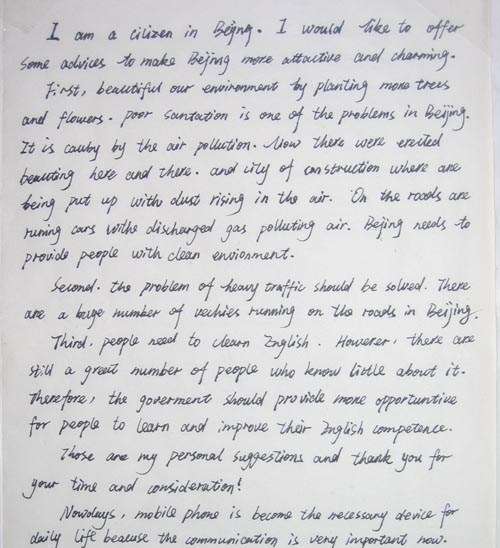 I am a citizen in Bejing. I would like to offer
some advices to make Beijing more attractive and charming.
First, beautiful our environment by planting more trees
and flowers. Poor santation is one of the problems in Beijing.
It is cauby by the air pollution. Now there were erected
beauting here and there. and lity of construction where are
being put up with dust rising in the air. On the roads are
runing cars withe discharged gas polluting air. Bejing needs to
provide people with clean enviorment.
Second. the problem of heavy traffic should be solved. There
are a huge number of vechies running on the roads in Beijing.
Third. people need to learn English. However, there are
still a great number of people who know little about it.
Therefore, the goverment should provide more opportuntive
for people to learn and improve their English competence.
Those are my personal suggestions and thank you for
your time and consideration!
Nowdays, mobile phone is become the necessary device for
daily life because the communication is very important now.